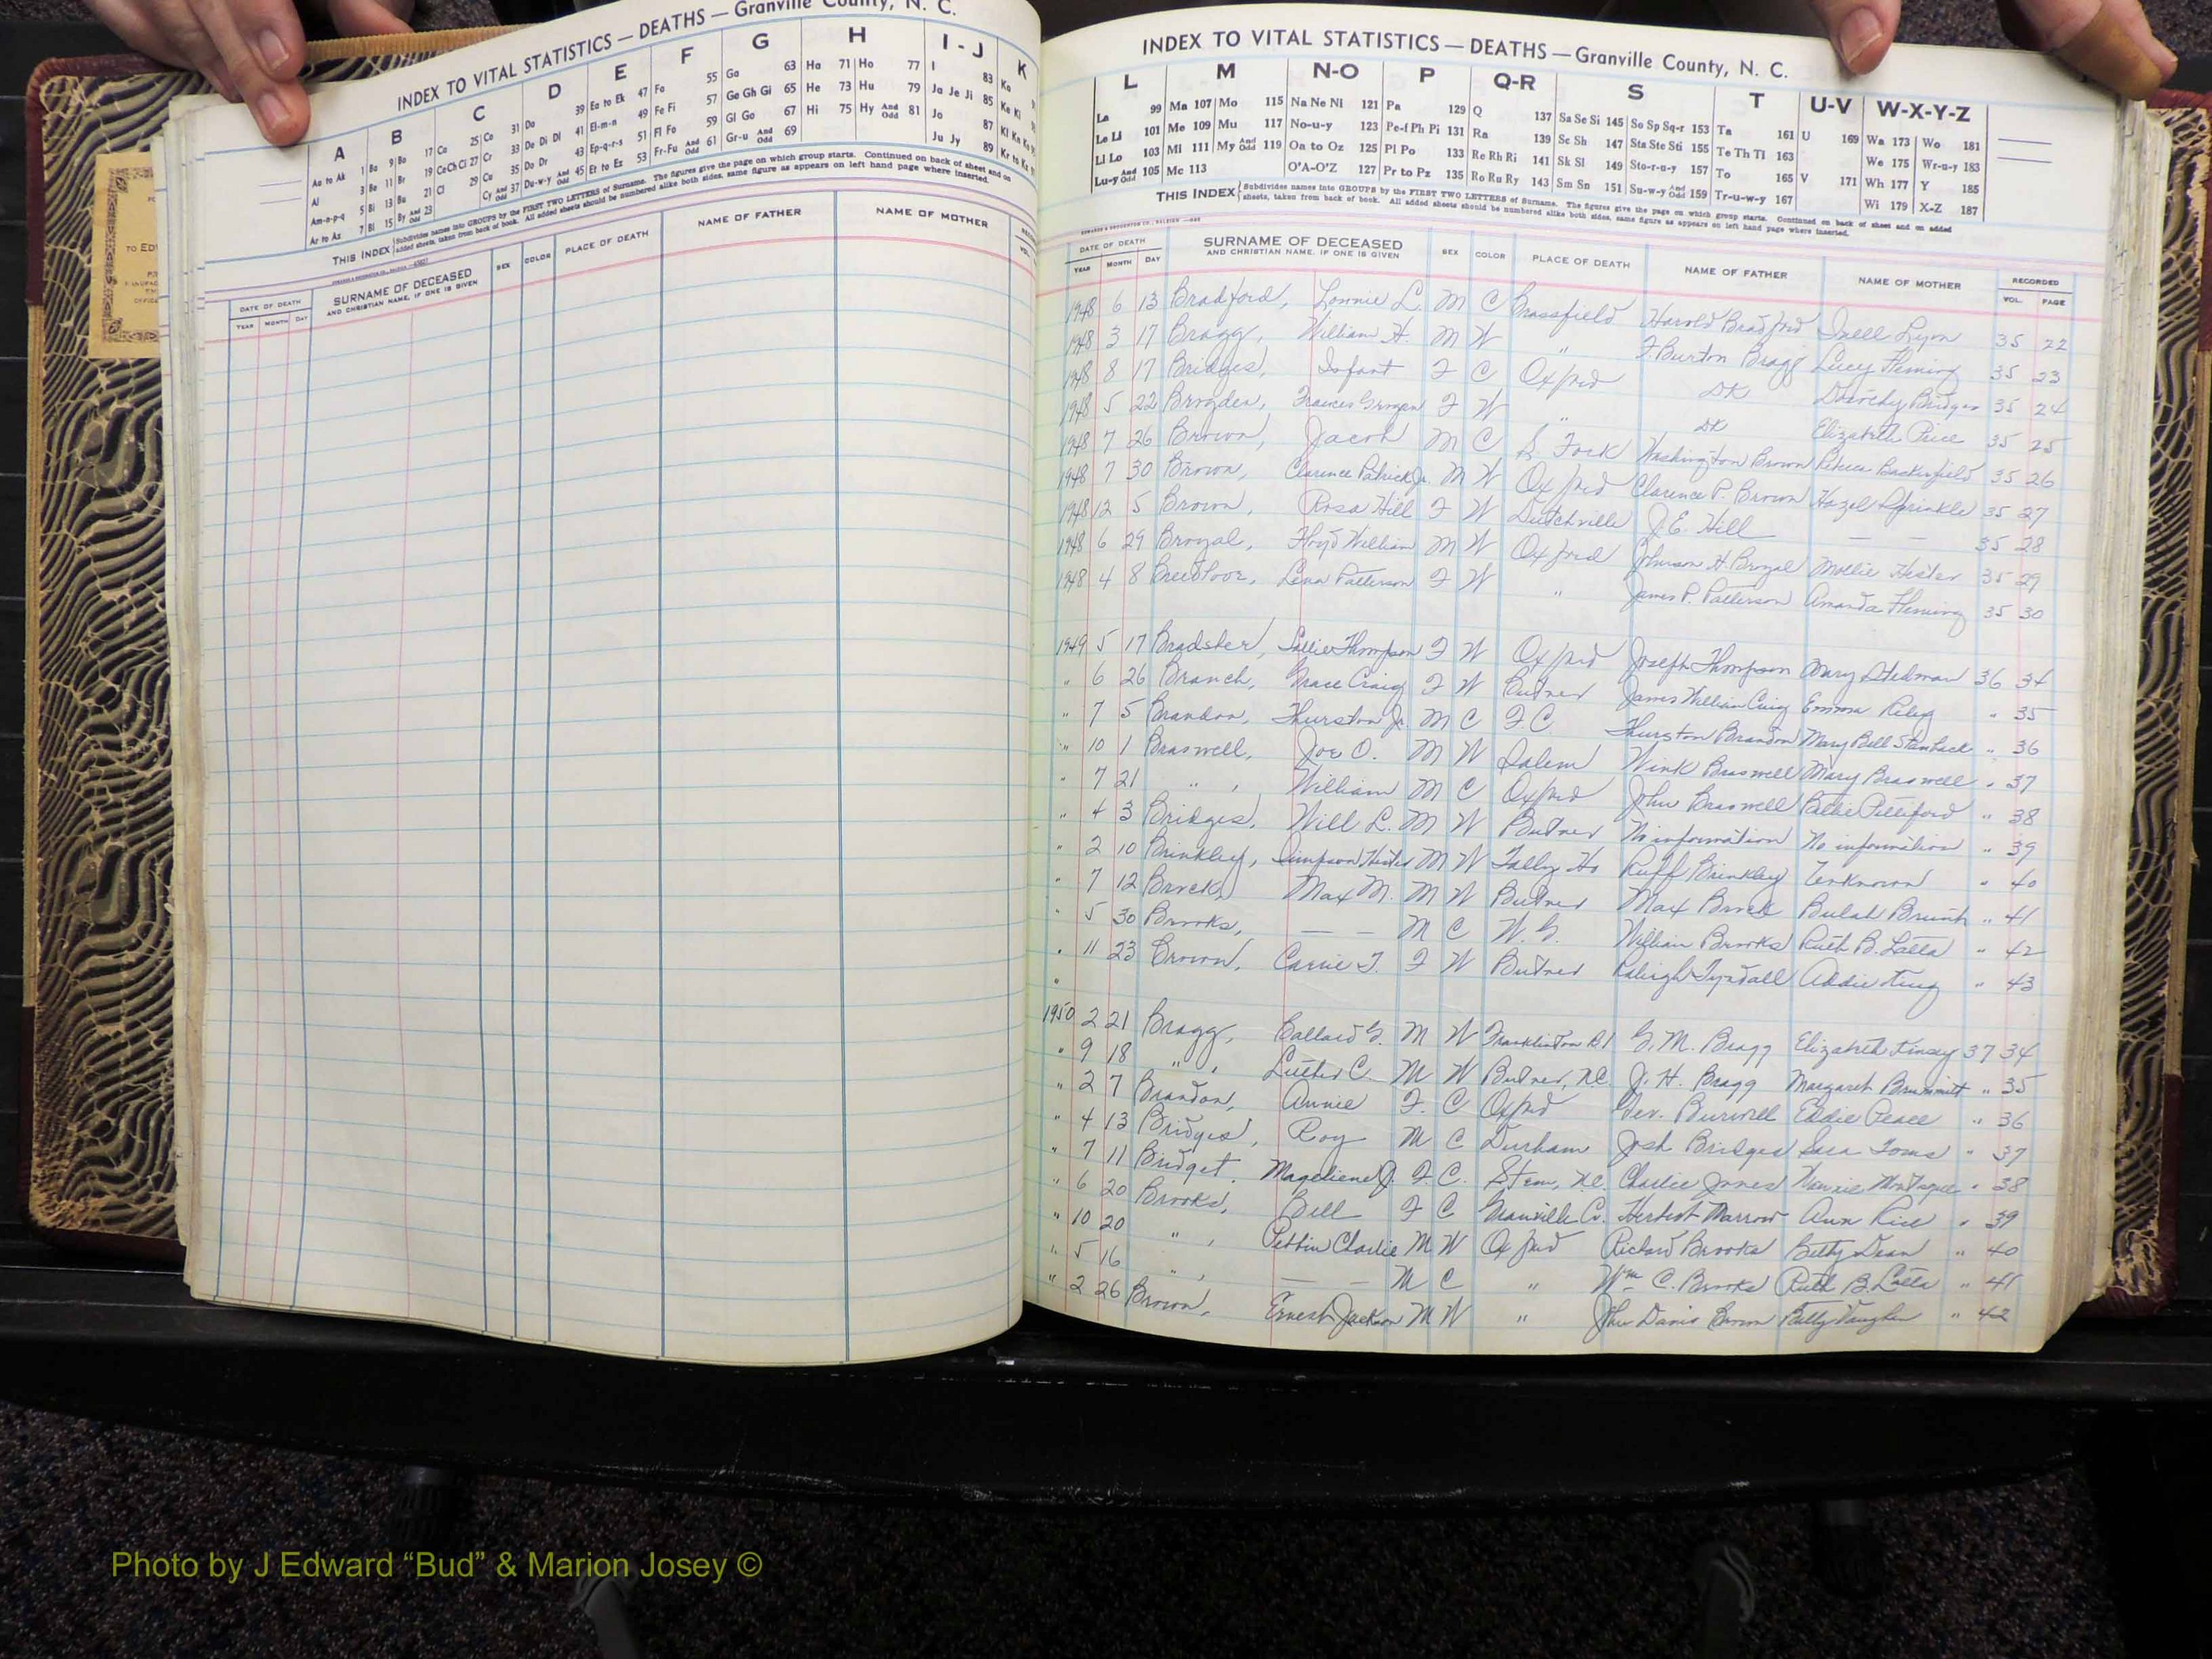 INDEX TO VITAL STATISTICS — DEATHS — Granville County, N. C.
A B C D E F G H I - J K
Aa to Ak 1 Ba 9 Bo 17 Ca 25 Co 31 Da 39 Ea to Ek 47 Fa 55 Ga 63 Ha 71 Ho 77 I 83 Ka
Al 3 Be 11 Br 19 Ce Ch Ci 27 Cr 33 De Di Dl 41 El-m-n 49 Fe Fi 57 Ge Gh Gi 65 He 73 Hu 79 Ja Je Ji 85 Ke Ki
Am-n-p-q 5 Bi 13 Bu 21 Cl 29 Cu 35 Do Dr 43 Ep-q-r-s 51 Fl Fo 59 Gl Go 67 Hi 75 Hy And Odd 81 Jo 87 Kl Kn Ko
Ar to Az 7 Bl 15 By And Odd 23 Cy And Odd 37 Du-w-y And Odd 45 Et to Ez 53 Fr-Fu And Odd 61 Gr-u And Odd 69 Ju Jy 89 Kr to Kz
THIS INDEX Subdivides names into GROUPS by the FIRST TWO LETTERS of Surname. The figures give the page on which group starts. Continued on back of sheet and on
added sheets, taken from back of book. All added sheets should be numbered alike both sides, same figure as appears on left hand page where inserted.
DATE OF DEATH SURNAME OF DECEASED SEX COLOR PLACE OF DEATH NAME OF FATHER NAME OF MOTHER
YEAR MONTH DAY AND CHRISTIAN NAME, IF ONE IS GIVEN VOL.
INDEX TO VITAL STATISTICS — DEATHS — Granville County, N. C.
L M N-O P Q-R S T U-V W-X-Y-Z
La 99 Ma 107 Mo 115 Na Ne Ni 121 Pa 129 Q 137 Sa Se Si 145 So Sp Sq-r 153 Ta 161 U 169 Wa 173 Wo 181
Le Li 101 Me 109 Mu 117 No-u-y 123 Pe-f Ph Pi 131 Ra 139 Sc Sh 147 Sta Ste Sti 155 Te Th Ti 163 We 175 Wr-u-y 183
Ll Lo 103 Mi 111 My And Odd 119 Oa to Oz 125 Pl Po 133 Re Rh Ri 141 Sk Sl 149 Sto-r-u-y 157 To 165 V 171 Wh 177 Y 185
Lu-y And Odd 105 Mc 113 O'A-O'Z 127 Pr to Pz 135 Ro Ru Ry 143 Sm Sn 151 Su-w-y And Odd 159 Tr-u-w-y 167 Wi 179 X-Z 187
THIS INDEX Subdivides names into GROUPS by the FIRST TWO LETTERS of Surname. The figures give the page on which group starts. Continued on back of sheet and on added
sheets, taken from back of book. All added sheets should be numbered alike both sides, same figure as appears on left hand page where inserted.
DATE OF DEATH SURNAME OF DECEASED SEX COLOR PLACE OF DEATH NAME OF FATHER NAME OF MOTHER RECORDED
YEAR MONTH DAY AND CHRISTIAN NAME, IF ONE IS GIVEN VOL. PAGE
1948 6 13 Bradford, Lonnie L. M C Brassfield Harold Bradford Inell Lyon 35 22
1948 3 17 Bragg, William H. M W " F. Burton Bragg Lucy Fleming 35 23
1948 8 17 Bridges, Infant F C Oxford DK Dorothy Bridges 35 24
1948 5 22 Brogden, Frances Grogan F W " DK Elizabeth Price 35 25
1948 7 26 Brown, Jacob M C S. Fork Washington Brown 35 26
1948 7 30 Brown, Clarence Patrick Jr. M W Oxford Clarence P. Brown Hazel Sprinkle 35 27
1948 12 5 Brown, Rosa Hill F W Dutchville J. E. Hill — — 35 28
1948 6 29 Broyal, Floyd William M W Oxford Johnson H. Broyal Mollie Hester 35 29
1948 4 8 Breedlove, Lena Patterson F W " James P. Patterson Amanda Fleming 35 30
1949 5 17 Bradsher, Sallie Thompson F W Oxford Joseph Thompson Mary Stedman 36 34
" 6 26 Branch, Grace Craig F W Butner James William Craig Emma Riley " 35
" 7 5 Brandon, Thurston Jr. M C F.C. Thurston Brandon Mary Bell Stanback " 36
" 10 1 Braswell, Joe O. M W Salem Wink Braswell Mary Braswell " 37
" 7 21 " , William M C Oxford John Braswell " 38
" 4 3 Bridges, Will L. M W Butner No information No information " 39
" 2 10 Brinkley, Simpson Hester M W Tally Ho Ruff Brinkley Unknown " 40
" 7 12 Brock, Max M. M W Butner Max Brock Bulah " 41
" 5 30 Brooks, — — M C W. G. William Brooks Ruth B. Latta " 42
" 11 23 Brown, Carrie T. F W Butner Raleigh Tyndall Addie King " 43
"
1950 2 21 Bragg, Ballard G. M W Franklinton R1 G. M. Bragg Elizabeth Kinsey 37 34
" 9 18 " , Luther C. M W Butner, N.C. J. H. Bragg Margaret Brummitt " 35
" 2 7 Brandon, Annie F. C Oxford Gev. Burwell Eddie Peace " 36
" 4 13 Bridges, Roy M C Durham Josh Bridges Sara Toms " 37
" 7 11 Bridget, Mageliene J. F. C. Stem, N.C. Charlie Jones Nannie Montague " 38
" 6 20 Brooks, Bell F C Granville Co. Herbert Marrow Ann Rice " 39
" 10 20 " , Charlie M W Oxford Richard Brooks Betty Dean " 40
" 5 16 " , — — M C " Wm C. Brooks Ruth B. Latta " 41
" 2 26 Brown, Ernest Jackson M W " John Davis Brown Betty Vaughan " 42
Photo by J Edward “Bud” & Marion Josey ©